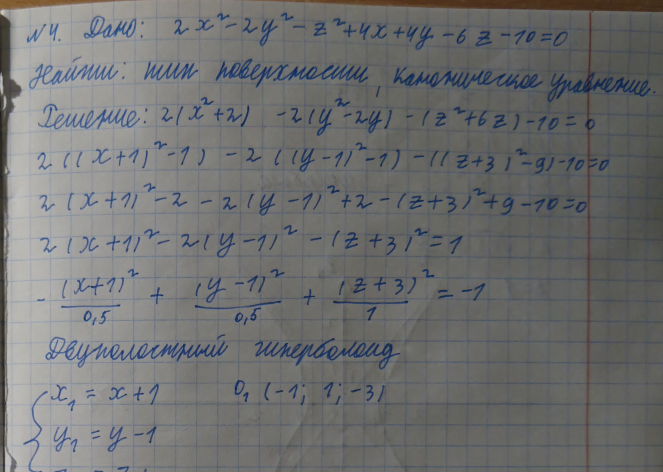 №4. Дано: 2x²-2y²-z²+4x+4y-6z-10=0
Найти: тип поверхности, каноническое уравнение.
Решение: 2(x²+2) -2(y²-2y) -(z²+6z)-10=0
2((x+1)²-1) -2((y-1)²-1) -((z+3)²-9)-10=0
2(x+1)²-2 -2(y-1)²+2-(z+3)²+9-10=0
2(x+1)²-2(y-1)²-(z+3)²=1
-(x+1)²/0,5 + (y-1)²/0,5 + (z+3)²/1 = -1
Двуполостный гиперболоид
{x₁ = x+1 O₁(-1; 1; -3)
y₁ = y-1